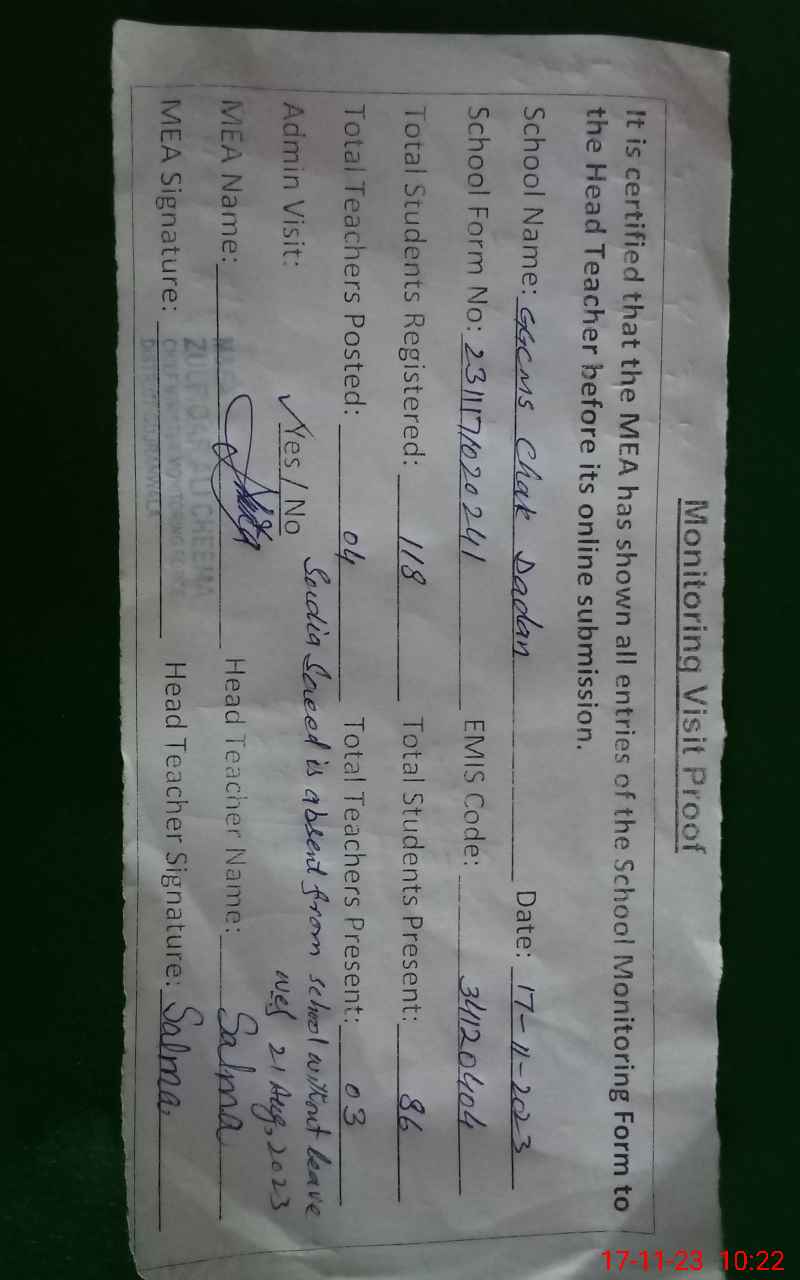 Monitoring Visit Proof
It is certified that the MEA has shown all entries of the School Monitoring Form to
the Head Teacher before its online submission.
School Name: GGCMS Chak Dadan Date: 17-11-2023
School Form No: 2311171020241 EMIS Code: 34120404
Total Students Registered: 118 Total Students Present: 86
Total Teachers Posted: 04 Total Teachers Present: 03
Sadia Saeed is absent from school without leave
Admin Visit: ✓Yes / No wef 21 Aug, 2023
MEA Name: Head Teacher Name: Salma
MEA Signature: Head Teacher Signature: Salma
ZULFIQAR ALI CHEEMA
17-11-23 10:22